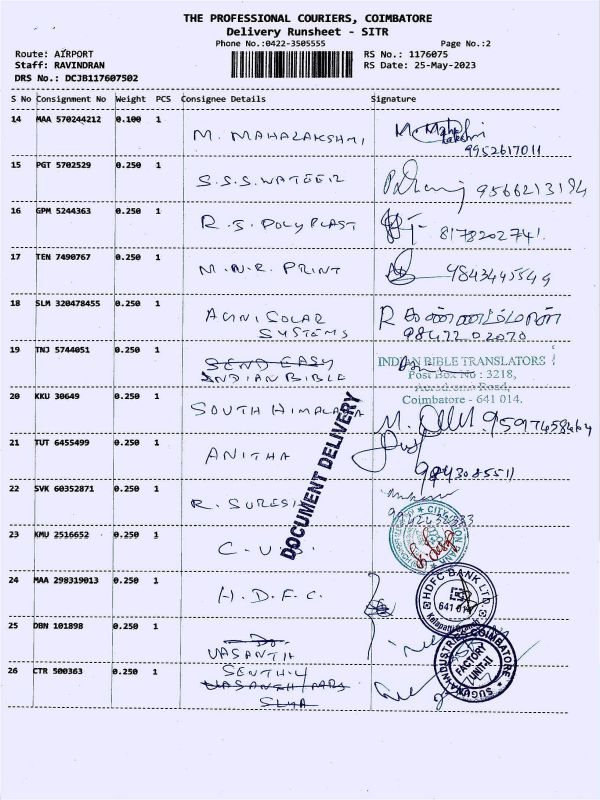 THE PROFESSIONAL COURIERS, COIMBATORE
Delivery Runsheet - SITR
Phone No.:0422-3505555 Page No.:2
Route: AIRPORT RS No.: 1176075
Staff: RAVINDRAN RS Date: 25-May-2023
DRS No.: DCJB117607502
S No Consignment No Weight PCS Consignee Details Signature
14 MAA 570244212 0.100 1
M. MAHALAKSHMI
9952617011
15 PGT 5702529 0.250 1
S.S.S. WATEER
16 GPM 5244363 0.250 1
R.S. POLYPLAST
8178202741.
17 TEN 7490767 0.250 1
M.N.R. PRINT
18 SLM 320478455 0.250 1
AGNI SOLAR
SYSTEMS
98472 02070
19 TNJ 5744051 0.250 1
SEND EASY
INDIAN BIBLE
INDIAN BIBLE TRANSLATORS
Post Box No : 3218,
Aerodrome Road,
Coimbatore - 641 014.
20 KKU 30649 0.250 1
SOUTH HIMALAYA
21 TUT 6455499 0.250 1
ANITHA
DOCUMENT DELIVERY
22 SVK 60352871 0.250 1
R. SURESH
23 KMU 2516652 0.250 1
C.U.B.
24 MAA 298319013 0.250 1
H.D.F.C.
HDFC BANK LTD.
641 014
Kalapatti Branch
25 DBN 101898 0.250 1
VASANTH
26 CTR 500363 0.250 1
SUGUNA INDUSTRIES COIMBATORE
FACTORY
UNIT-II